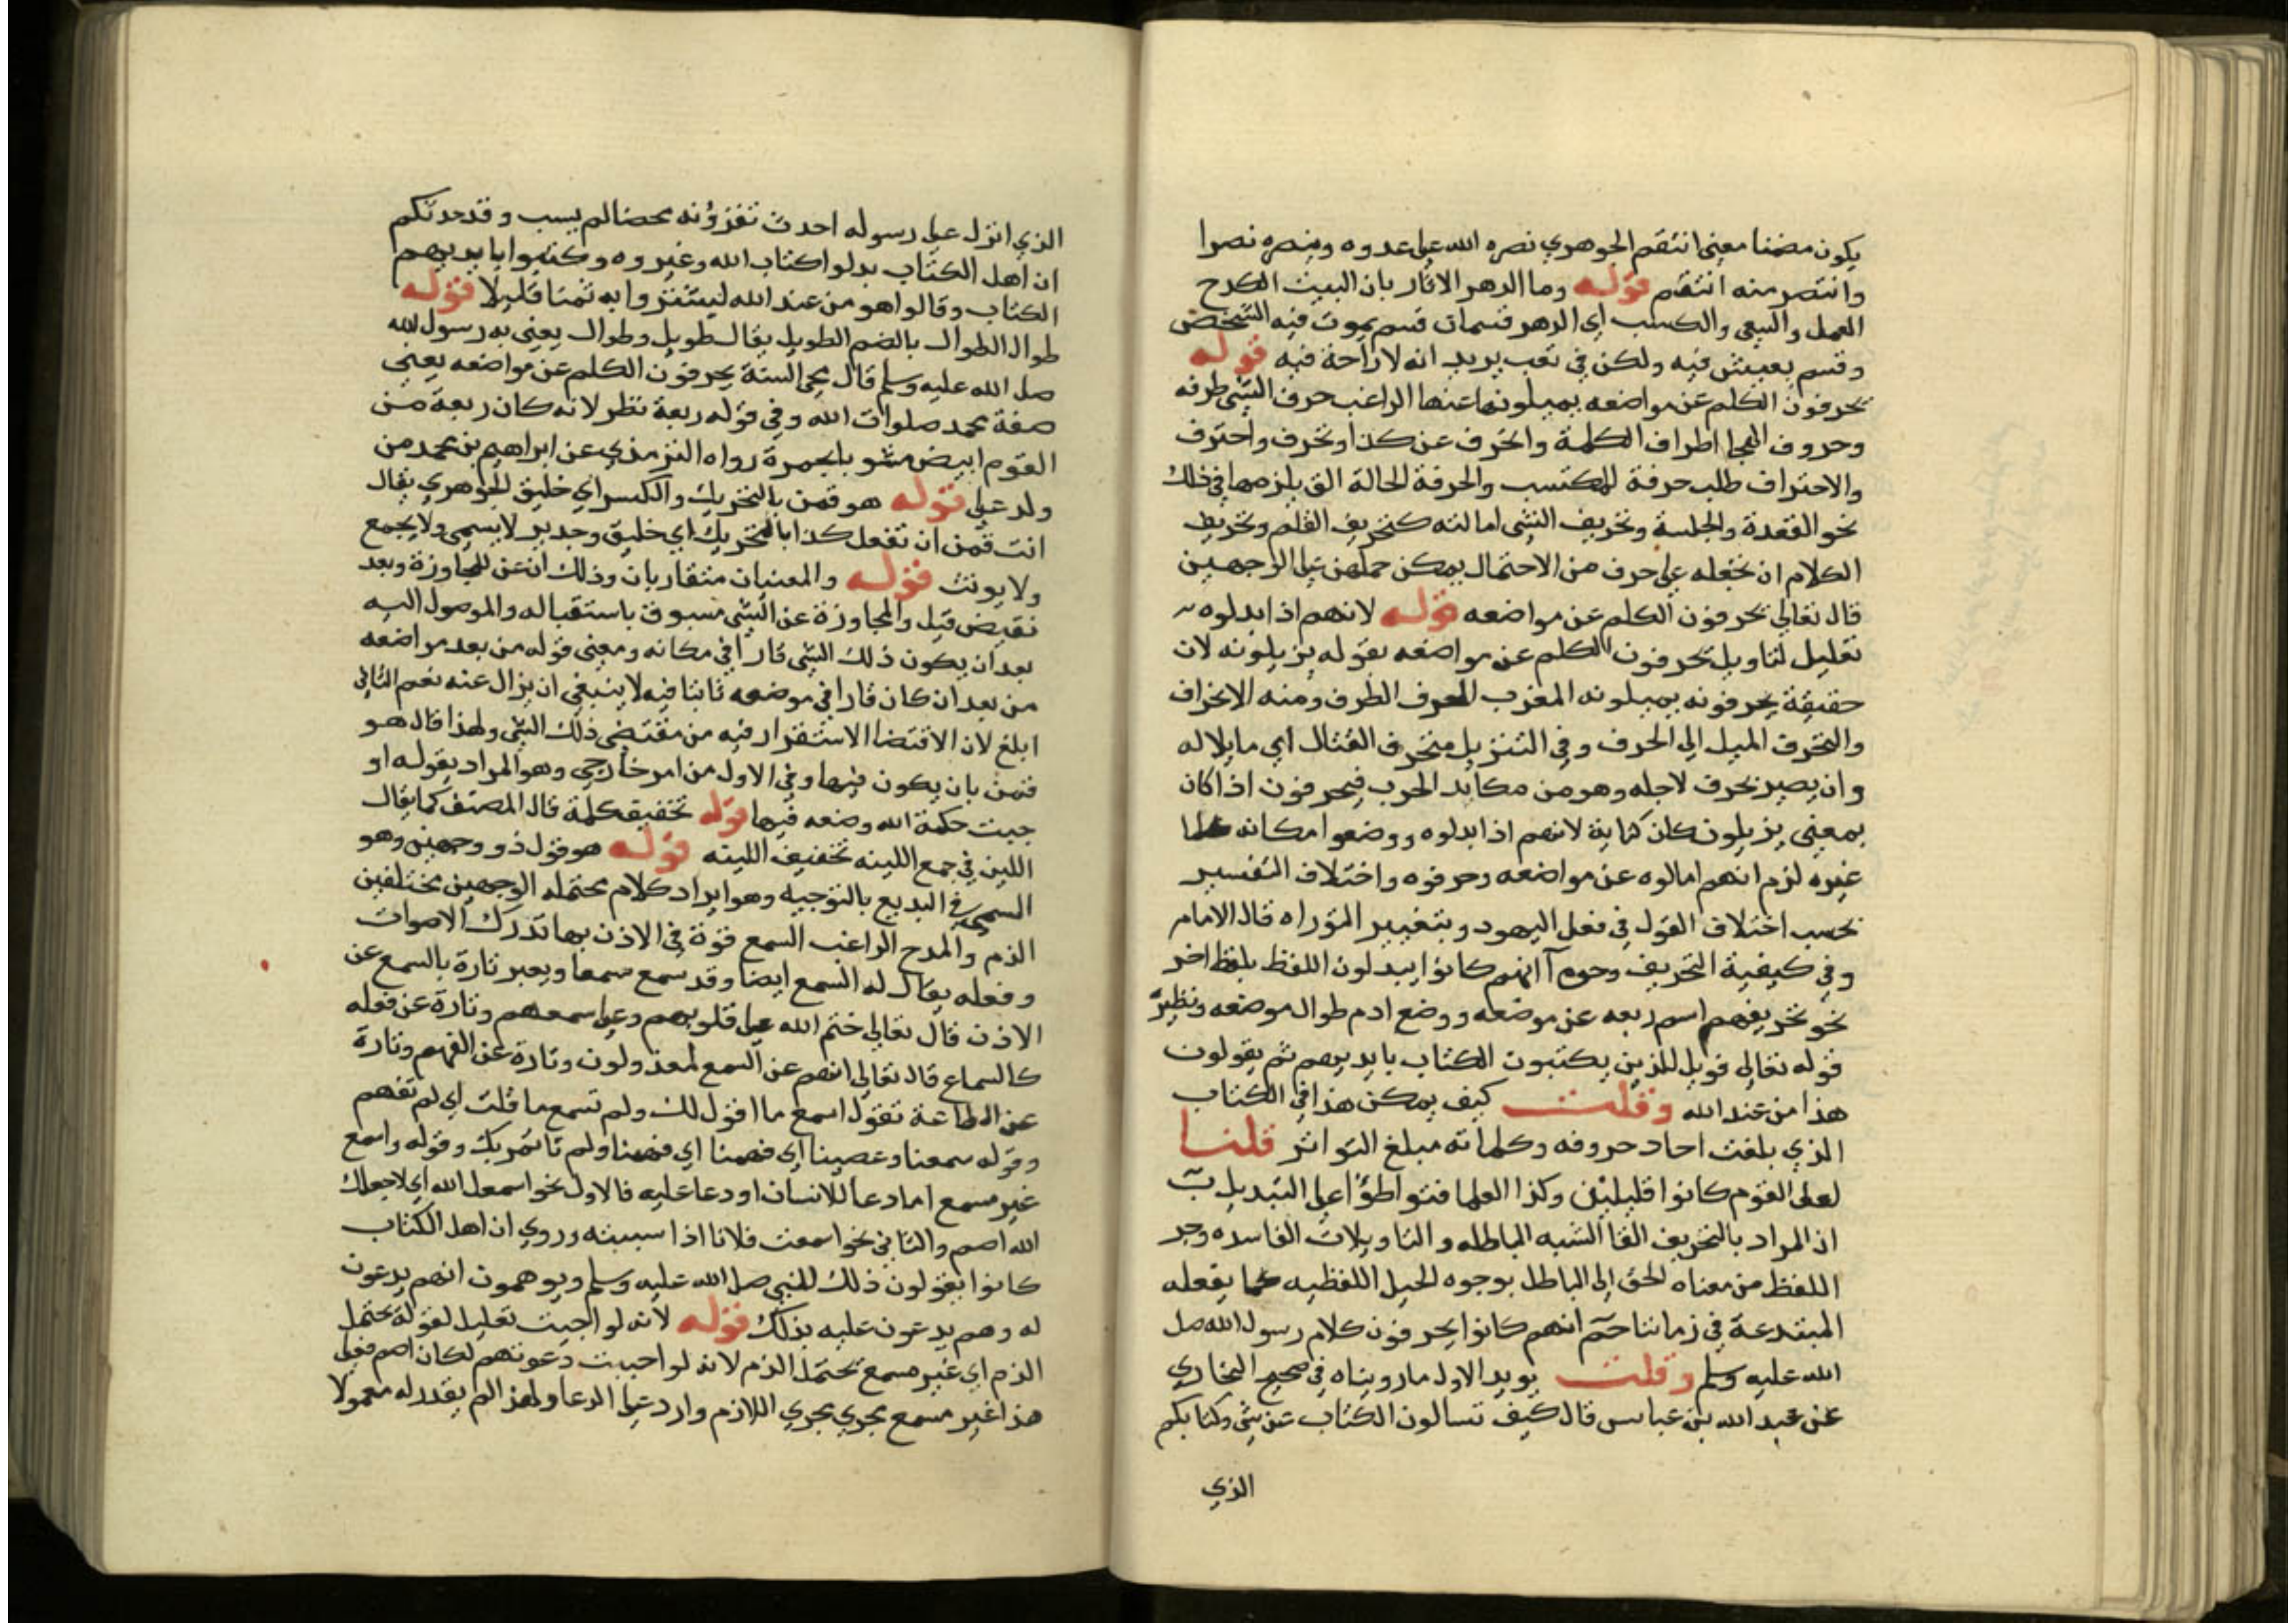 يكون مضمنا معنى انتقم الجوهري نصره الله على عدوه وينصره نصرا
وانتصر منه انتقم قوله وما الدهر الا تارتان البيت الكدح
العمل والسعي والكسب اي الدهر قسمان قسم يموت فيه الشخص
وقسم يعيش فيه ولكن في تعب يريد انه لا راحة فيه قوله
يحرفون الكلم عن مواضعه يميلونها عنها الراغب حرف الشي طرفه
وحروف الهجا اطراف الكلمة وانحرف عن كذا وتحرف واحترف
والاحتراف طلب حرفة للمكتسب والحرفة الحالة التي يلزمها في ذلك
نحو القعدة والجلسة وتحريف الشي امالته كتحريف القلم وتحريف
الكلام ان تجعله على حرف من الاحتمال يمكن حملهن على الوجهين
قال تعالى يحرفون الكلم عن مواضعه قوله لانهم اذا بدلوه
تعليل لتاويل يحرفون الكلم عن مواضعه بقوله يزيلونه لان
حقيقة يحرفونه يميلونه المغرب الحرف الطرف ومنه الانحراف
والتحرف الميل الى الحرف وفي التنزيل متحرف القتال اي مايلا له
وان يصير بحرف لاجله وهو من مكايد الحرب فيحرفون اذا كان
بمعنى يزيلون كان كناية لانهم اذا بدلوه ووضعوا مكانه
غيره لزم انهم امالوه عن مواضعه وحرفوه واختلاف التفسير
بحسب اختلاف القول في فعل اليهود وبتغيير التوراه قال الامام
وفي كيفية التحريف وجوه آ انهم كانوا يبدلون اللفظ بلفظ اخر
نحو تحريفهم اسم ربعه عن موضعه ووضع ادم طوال موضعه ونظيره
قوله تعالى فويل للذين يكتبون الكتاب بايديهم ثم يقولون
هذا من عند الله وقلت كيف يمكن هذا في الكتاب
الذي بلغت احاد حروفه وكلماته مبلغ التواتر قلنا
لعل القوم كانوا قليلين وكذا العلما فتواطؤا على التبديل ب
ان المراد بالتحريف القا الشبه الباطله والتاويلات الفاسده وجر
اللفظ من معناه الحق الى الباطل بوجوه الحيل اللفظيه كما يفعله
المبتدعة في زماننا ج انهم كانوا يحرفون كلام رسول الله صل
الله عليه وسلم وقلت يويد الاول ما رويناه في صحيح البخاري
عن عبد الله بن عباس قال كيف تسالون الكتاب عن شي وكتابكم
الذي
الذي انزل على رسوله احدث تقرؤنه محضا لم يشب وقد حدثكم
ان اهل الكتاب بدلوا كتاب الله وغيروه وكتبوا بايديهم
الكتاب وقالوا هو من عند الله ليشتروا به ثمنا قليلا قوله
طوال الطوال بالضم الطويل يقال طويل وطوال يعني به رسول الله
صل الله عليه وسلم قال محي السنة يحرفون الكلم عن مواضعه يعني
صفة محمد صلوات الله وفي قوله ربعة نظر لانه كان ربعة من
القوم ابيض مشوبا بحمرة رواه الترمذي عن ابراهيم بن محمد من
ولد علي قوله هو قمن بالتحريك والكسر اي خليق الجوهري يقال
انت قمن ان تفعل كذا بالتحريك اي خليق وجدير لا يسمى ولا يجمع
ولا يونث قوله والمعنيان متقاربان وذلك ان عن للمجاوزة وبعد
نقيض قبل والمجاوزة عن الشي مسبوق باستقباله والموصول اليه
بعد ان يكون ذلك الشي قارا في مكانه ومعنى قوله من بعد مواضعه
من بعد ان كان قارا في موضعه ثابتا فيه لا ينبغي ان يزال عنه نعم الثاني
ابلغ لان الاقتضا الاستقرار فيه من مقتضى ذلك الشي ولهذا قال هو
قمن بان يكون فيها وفي الاول من امر خارجي وهو المراد بقوله او
حيث حكمة الله وضعه فيها قوله تخفيف كلمة قال المصنف كما يقال
اللين في جمع اللينه تخفيف اللينه قوله هو قول ذو وجهين وهو
المسمى في البديع بالتوجيه وهو ايراد كلام محتمله الوجهين مختلفين
الذم والمدح الراغب السمع قوة في الاذن بها تدرك الاصوات
وفعله يقال له السمع ايضا وقد سمع سمعا ويعبر تارة بالسمع عن
الاذن قال تعالى ختم الله على قلوبهم وعلى سمعهم وتارة عن فعله
كالسماع قال تعالى انهم عن السمع لمعزولون وتارة عن الفهم وتارة
عن الطاعة تقول اسمع ما اقول لك ولم تسمع ما قلت اي لم تفهم
وقوله سمعنا وعصينا اي فهمنا اي فهمنا ولم ناتمر بك وقوله واسمع
غير مسمع اما دعا للانسان او دعا عليه فالاول نحو اسمعك الله اي لا جعلك
الله اصم والثاني نحو اسمعت فلانا اذا سببته وروي ان اهل الكتاب
كانوا يقولون ذلك للنبي صل الله عليه وسلم ويوهمون انهم يدعون
له وهم يدعون عليه بذلك قوله لانه لو اجيبت تعليل لقوله محتمل
الذم اي غير مسمع محتمل الذم لانه لو اجيبت دعوتهم لكان اصم فعلى
هذا غير مسمع يجري مجري اللازم وارد على الدعا ولهذا لم يقدر له معمولا